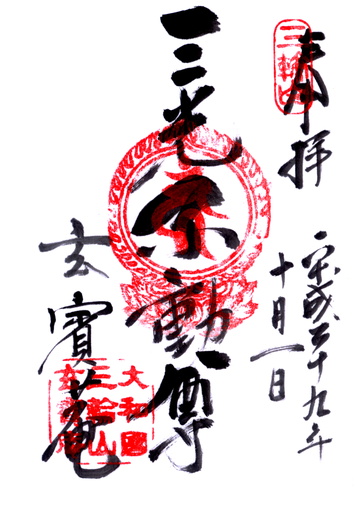 奉拝
平成二十九年
十月一日
三光不動尊
玄賓庵
三輪山
大和國
三輪山
玄賓庵